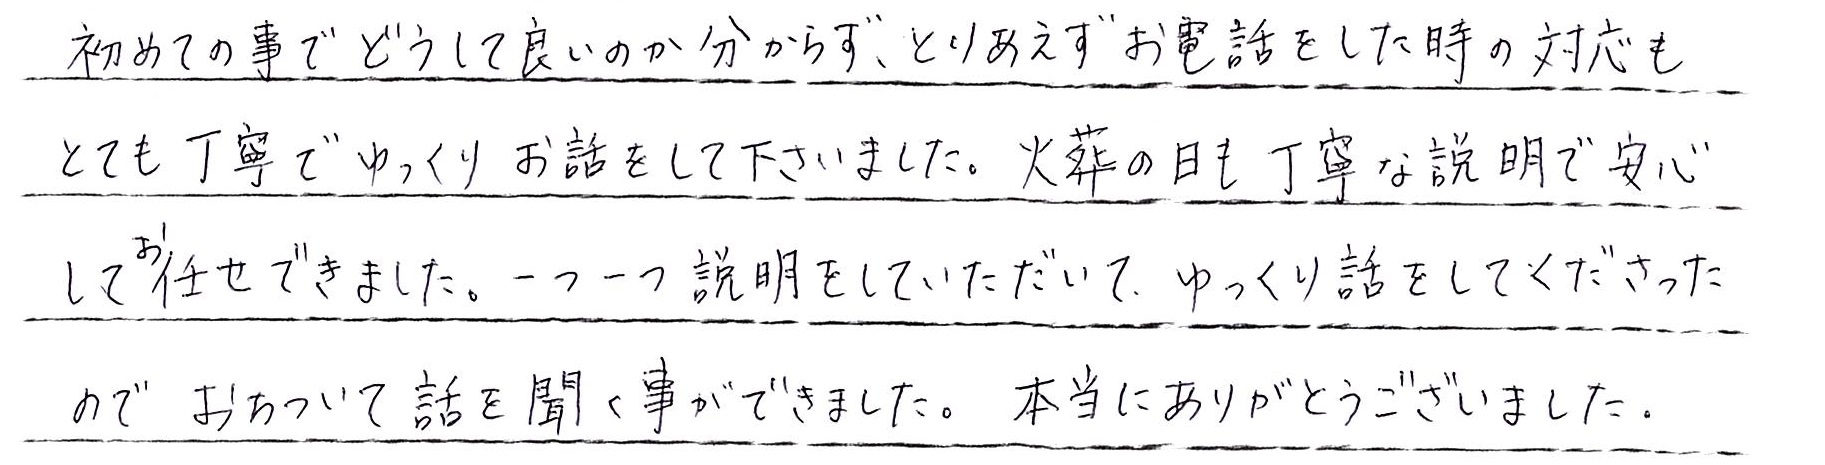 初めての事でどうして良いのか分からず、とりあえずお電話をした時の対応も
とても丁寧でゆっくりお話をして下さいました。火葬の日も丁寧な説明で安心
してお任せできました。一つ一つ説明をしていただいて、ゆっくり話をしてくださった
のでおちついて話を聞く事ができました。本当にありがとうございました。